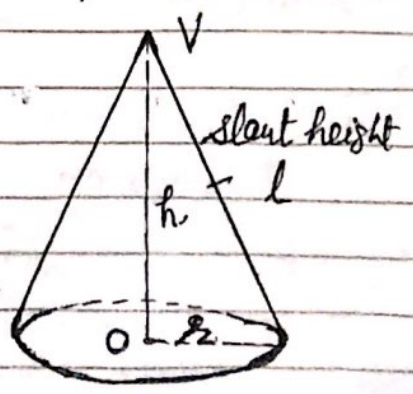 V
slant height
l
h
O r